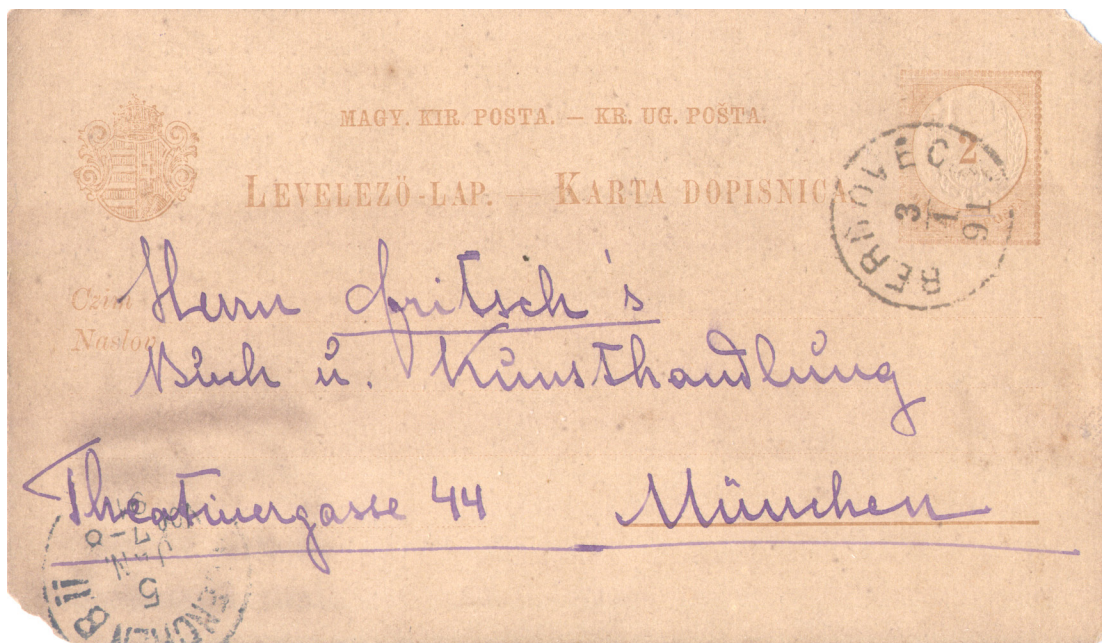 MAGY. KIR. POSTA. — KR. UG. POŠTA.
2
LEVELEZÖ-LAP. — KARTA DOPISNICA.
BERDOVEC
3
1
91
Czim
Naslov
Herrn Fritsch's
Buch u. Kunsthandlung
Theatinergasse 44 München
5 Jan.
7-8
91